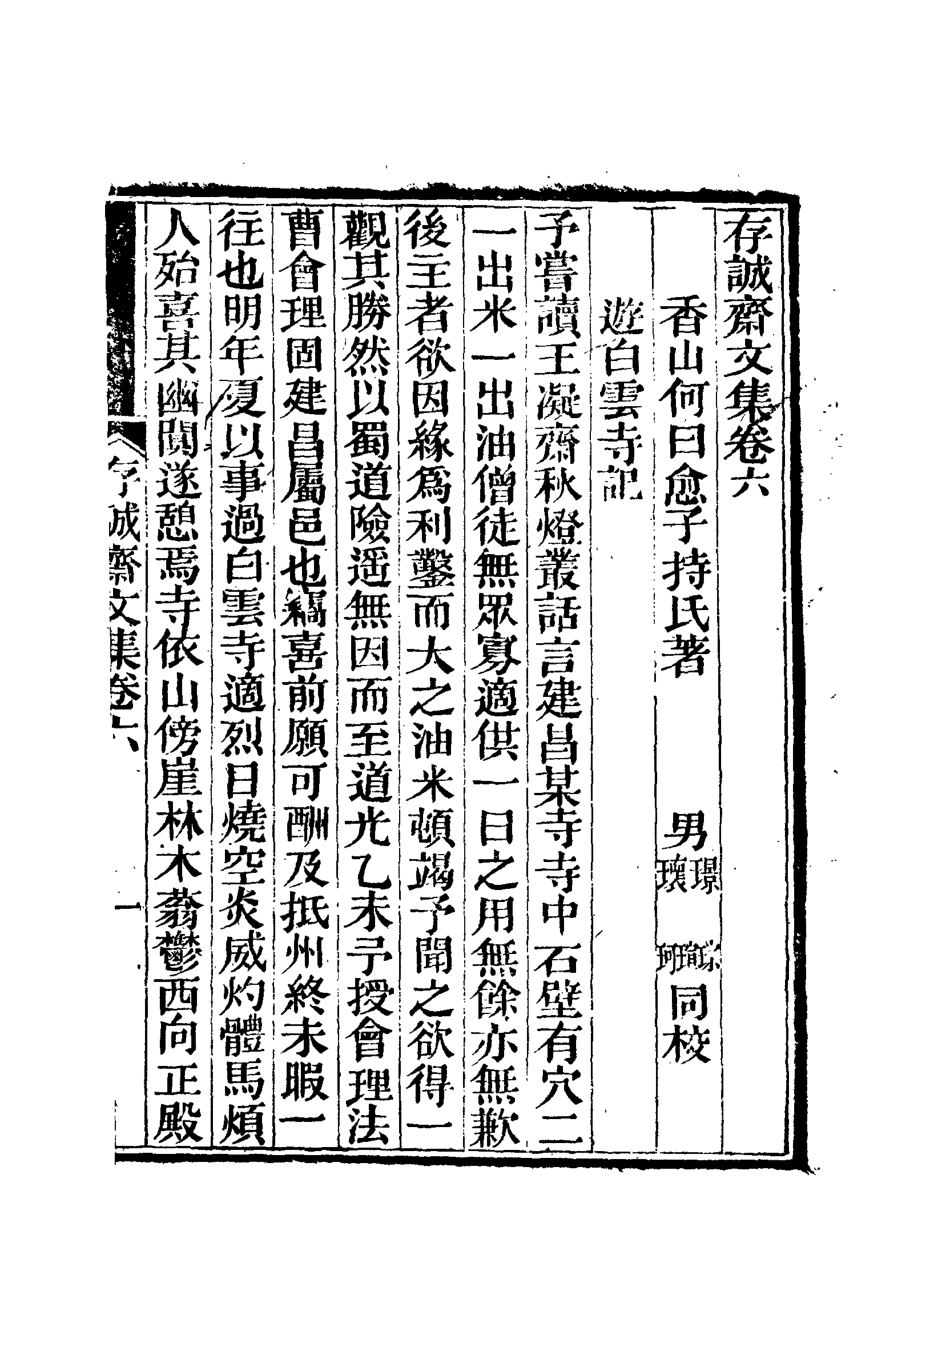 存誠齋文集卷六
香山何曰愈子持氏著 男璟瓖 琮璹珂同校
遊白雲寺記
予嘗讀王凝齋秋燈叢話言建昌某寺寺中石壁有穴二
一出米一出油僧徒無眾寡適供一日之用無餘亦無歉
後主者欲因緣爲利鑿而大之油米頓竭予聞之欲得一
觀其勝然以蜀道險遥無因而至道光乙未予授會理法
曹會理固建昌屬邑也竊喜前願可酬及抵州終未暇一
往也明年夏以事過白雲寺適烈日燒空炎威灼體馬煩
人殆喜其幽闃遂憩焉寺依山傍崖林木蓊鬱西向正殿
存誠齋文集卷六 一